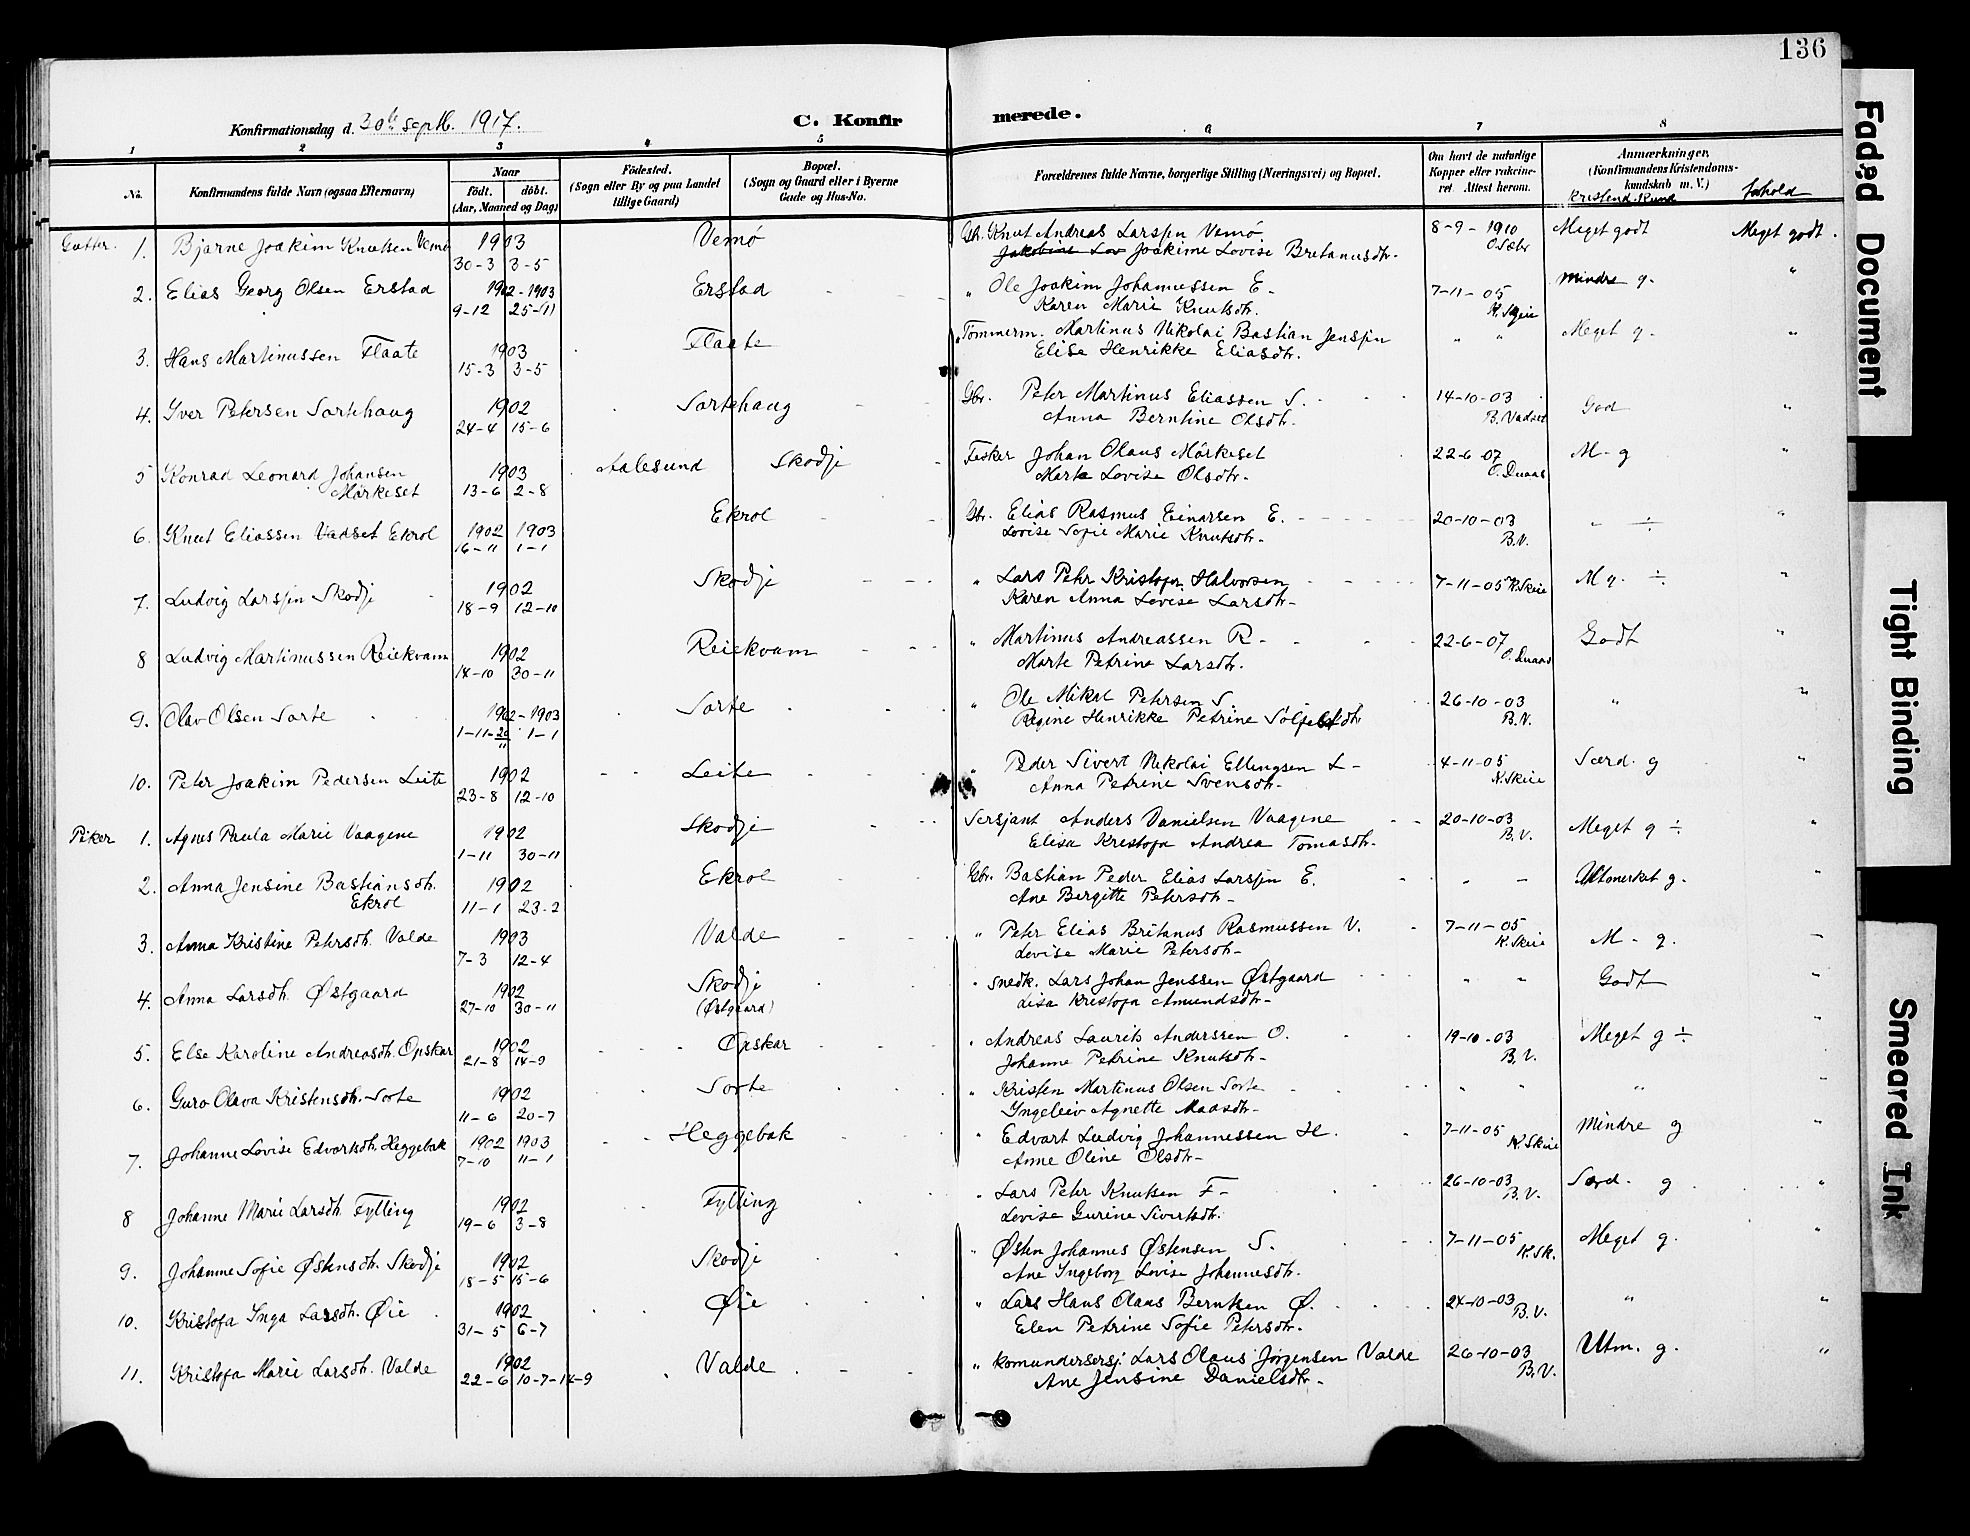 136
Konfirmationsdag d. 30te septb. 1917.
C. Konfirmerede.
1 2 3 4 5 6 7 8
No.
Konfirmandens fulde Navn (ogsaa Efternavn)
Naar
født. døbt.
(Aar, Maaned og Dag)
Fødested.
(Sogn eller By og paa Landet
tillige Gaard)
Bopæl.
(Sogn og Gaard eller i Byerne
Gade og Hus-No.
Forældrenes fulde Navne, borgerlige Stilling (Næringsvei) og Bopæl.
Om havt de naturlige
Kopper eller vakcine-
ret. Attest herom.
Anmærkninger.
(Konfirmandens Kristendoms-
kundskab m. V.)
Kristend. Kund
forhold
Gutter. 1. Bjarne Joakim Knutsen Vemø 1903 Vemø Gbr. Knut Andreas Larsen Vemø 8-9-1910 Meget godt Meget godt.
30-3 3-5 Joakime Lovise Bretanusdtr.
2. Elias Georg Olsen Erstad 1902-1903 Erstad " Ole Joakim Johannessen E. 7-11-05 Mindre g. "
9-12 25-11 Karen Marie Knutsdtr. K. Skeie
3. Hans Martinussen Flaate 1903 Flaate " Tømmerm. Martinus Nikolai Bastian Jensen " " Meget g. "
15-3 3-5 Elise Henrikke Eliasdtr.
4. Iver Petersen Sortehaug 1902 Sortehaug Gbr. Peter Martinus Eliassen S. 14-10-03 God "
24-4 15-6 Anna Berntine Olsdtr. B. Vadset
5 Konrad Leonard Johansen 1903 Aalesund Skodje Fisker Johan Olaus Mørkeset 22-6-07 M-g "
Mørkeset 13-6 2-8 Marte Lovise Olsdtr. O. Duaas
6. Knut Eliassen Vadset Ekrol 1902 1903 Ekrol Gbr. Elias Rasmus Einarsen E. 20-10-03 " ÷ "
16-11 1-1 Lovise Sofie Marie Knutsdtr. B.V.
7. Ludvig Larsen Skodje 1902 Skodje " Lars Petr Kristofer Halvorsen 7-11-05 K. Skeie M g. ÷ "
18-9 12-10 Karen Anna Lovise Larsdtr.
8 Ludvig Martinussen Reiekvam 1902 Reiekvam " Martinus Andreassen R. 22-6-07 Godt "
14-10 30-11 Marte Petrine Larsdtr. O. Duaas
9. Olav Olsen Sorte 1902-1903 Sorte " Ole Mikal Petersen S. 26-10-03 " "
1-11-20/11 1-1 Regine Henrikke Petrine B.V.
10. Peter Joakim Pedersen Leite 1902 Leite " Peder Sivert Nikolai Ellingsen L- 4-11-05 Særd. g "
23-8 12-10 Anna Petrine Svensdtr. K. Skeie
Piker 1. Agnes Paula Marie Vaagene 1902 Skodje Sersjant Anders Danielsen Vaagene 20-10-03 Meget g ÷ "
1-11 30-11 Elisa Kristofa Andrea Tomasdtr. B.V.
2. Anna Jensine Bastiansdtr. 1902 Ekrol Gbr. Bastian Peder Elias Larsen E. " - Utmerket g. "
Ekrol 11-1 23-2 Ane Bergitte Petersdtr.
3. Anna Kristine Petersdtr. Valde 1903 Valde " Petr Elias Britanus Rasmussen V. 7-11-05 M-g. "
7-3 12-4 Lovise Marie Petersdtr. K. Skeie
4. Anna Larsdtr. Østgaard 1902 Skodje " snedk. Lars Johan Jenssen Østgaard " " Godt "
27-10 30-11 (Østgaard) Lisa Kristofa Amundsdtr.
5. Else Karoline Andreasdtr. Opskar 1902 Opskar " Andreas Laurits Anderssen O. 19-10-03 Meget g ÷ "
21-8 14-9 Johanne Petrine Knutsdtr. B.V.
6. Guro Olava Kristensdtr. Sorte 1902 Sorte " Kristen Martinus Olsen Sorte " " " "
11-6 20-7 Ingeleiv Agnette Maasdtr.
7. Johanne Lovise Edvartsdtr. Heggebak 1902 1903 Heggebak " Edvart Ludvig Johannessen H. 7-11-05 Mindre g "
7-10 11-1 Anne Oline Olsdtr. K. Skeie
8 Johanne Marie Larsdtr. Fylling 1902 Fylling " Lars Petr Knutsen F- 26-10-03 Særd. g "
19-6 3-8 Lovise Gurine Sivertsdtr. B.V.
9. Johanne Sofie Østensdtr. Skodje 1902 Skodje " Østen Johannes Østensen S. 7-11-05 Meget g. "
18-5 15-6 Ane Ingeborg Lovise Johannesdtr. K. Sk.
10. Kristofa Inga Larsdtr. Øie 1902 Øie " Lars Hans Olaus Berntsen Ø. 24-10-03 " "
31-5 6-7 Elen Petrine Sofie Petersdtr. B.V.
11. Kristofa Marie Larsdtr. Valde 1902 Valde " komandersersj. Lars Olaus Jørgensen Valde 26-10-03 Utm. g. "
22-6 10-7-14-9 Ane Jensine Danielsdtr. B.V.
Faded Document
Tight Binding
Smeared Ink